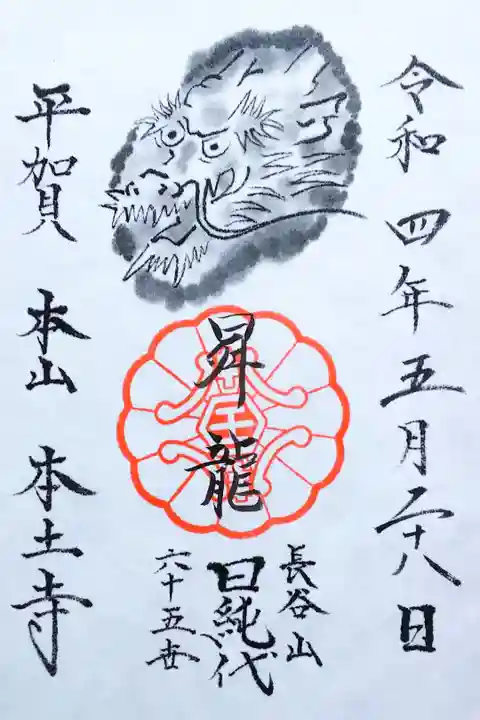 令和四年五月二十八日
昇龍
長谷山
日純代
六十五世
平賀 本山 本土寺